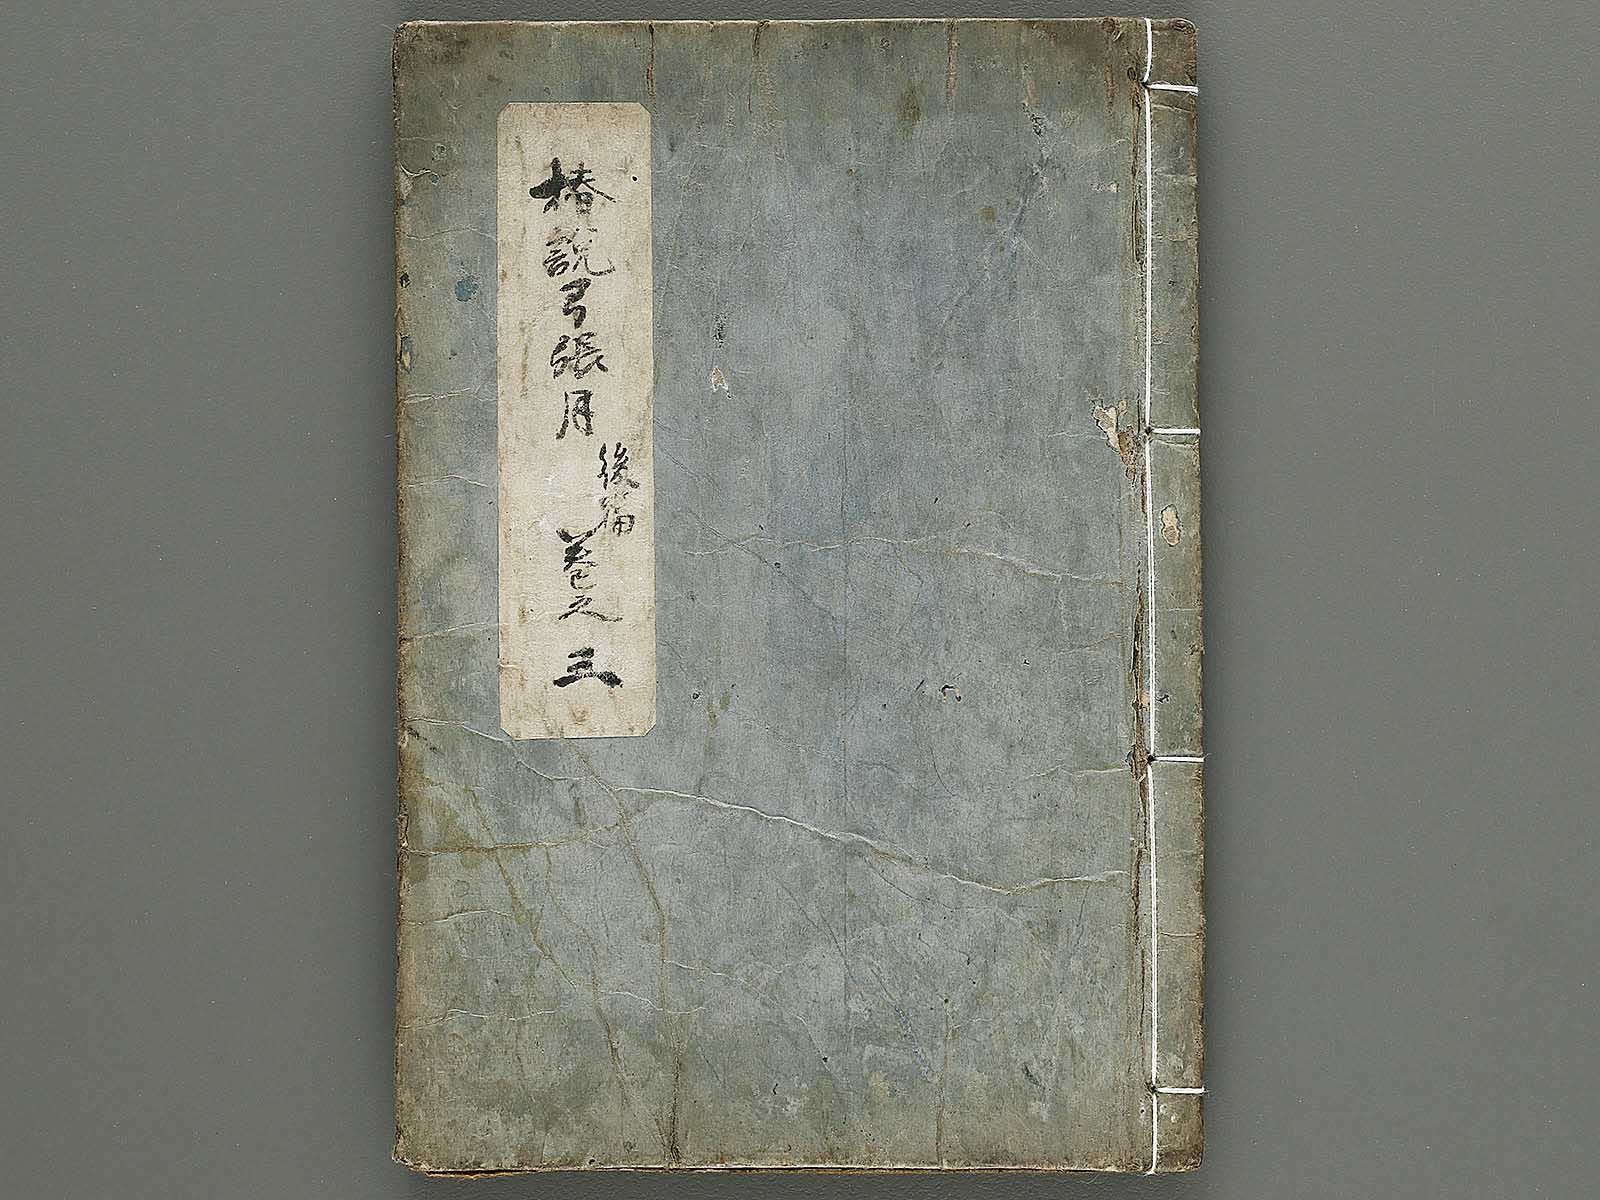 椿説弓張月
後篇
巻之三